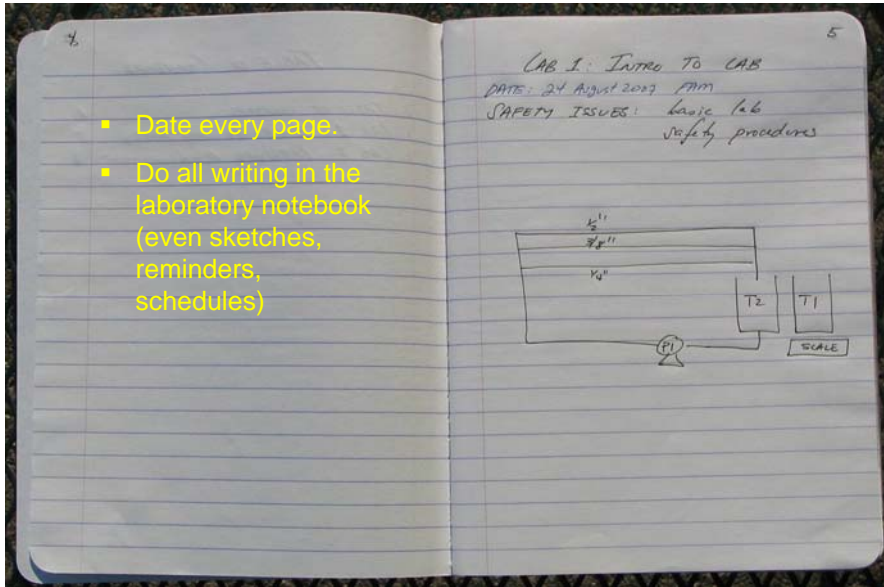 Date every page.
Do all writing in the
laboratory notebook
(even sketches,
reminders,
schedules)
5
LAB 1: INTRO TO LAB
DATE: 24 August 2007 FAM
SAFETY ISSUES: basic lab
safety procedures
1/2"
3/8"
1/4"
T2 T1
P1
SCALE